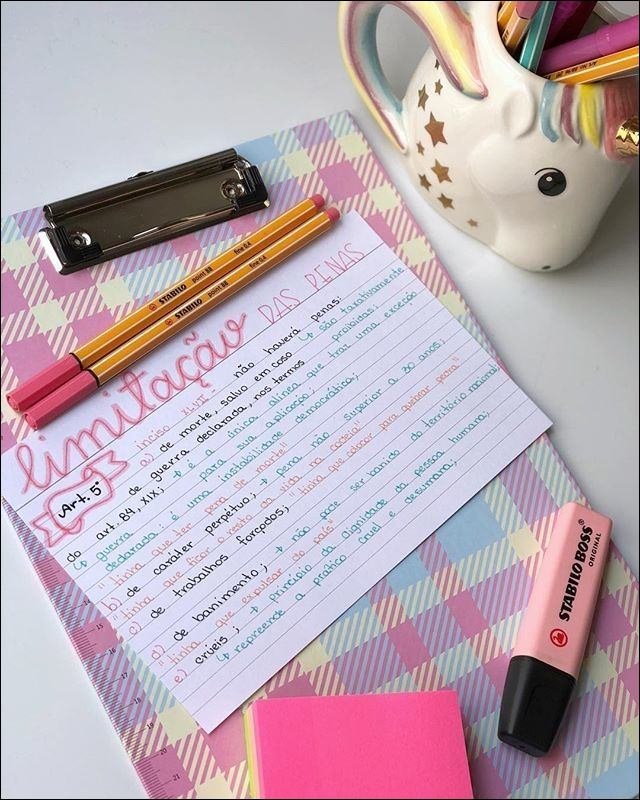 limitação DAS PENAS
Art. 5º
inciso XLVII não haverá penas:
a) de morte, salvo em caso ↳ são taxativamente
de guerra declarada, nos termos proibidas;
do art. 84, XIX; ↳ é a única alínea que traz uma exceção
↳ guerra para sua aplicação;
declarada: é uma instabilidade democrática;
"tinha que ter pena de morte"
b) de caráter perpétuo; ↳ pena não superior a 30 anos;
"tinha que tirar o resto da vida na cadeia"
c) de trabalhos forçados; "tinha que colocar para quebrar pedra"
d) de banimento; ↳ não pode ser banido do território nacional;
"tinha que expulsar do país"
e) cruéis; ↳ princípio da dignidade da pessoa humana;
↳ repreende a prática cruel e desumana;
STABILO point 88 fine 0.4
STABILO point 88 fine 0.4
STABILO BOSS®
ORIGINAL
15
16
17
18
19
20
21